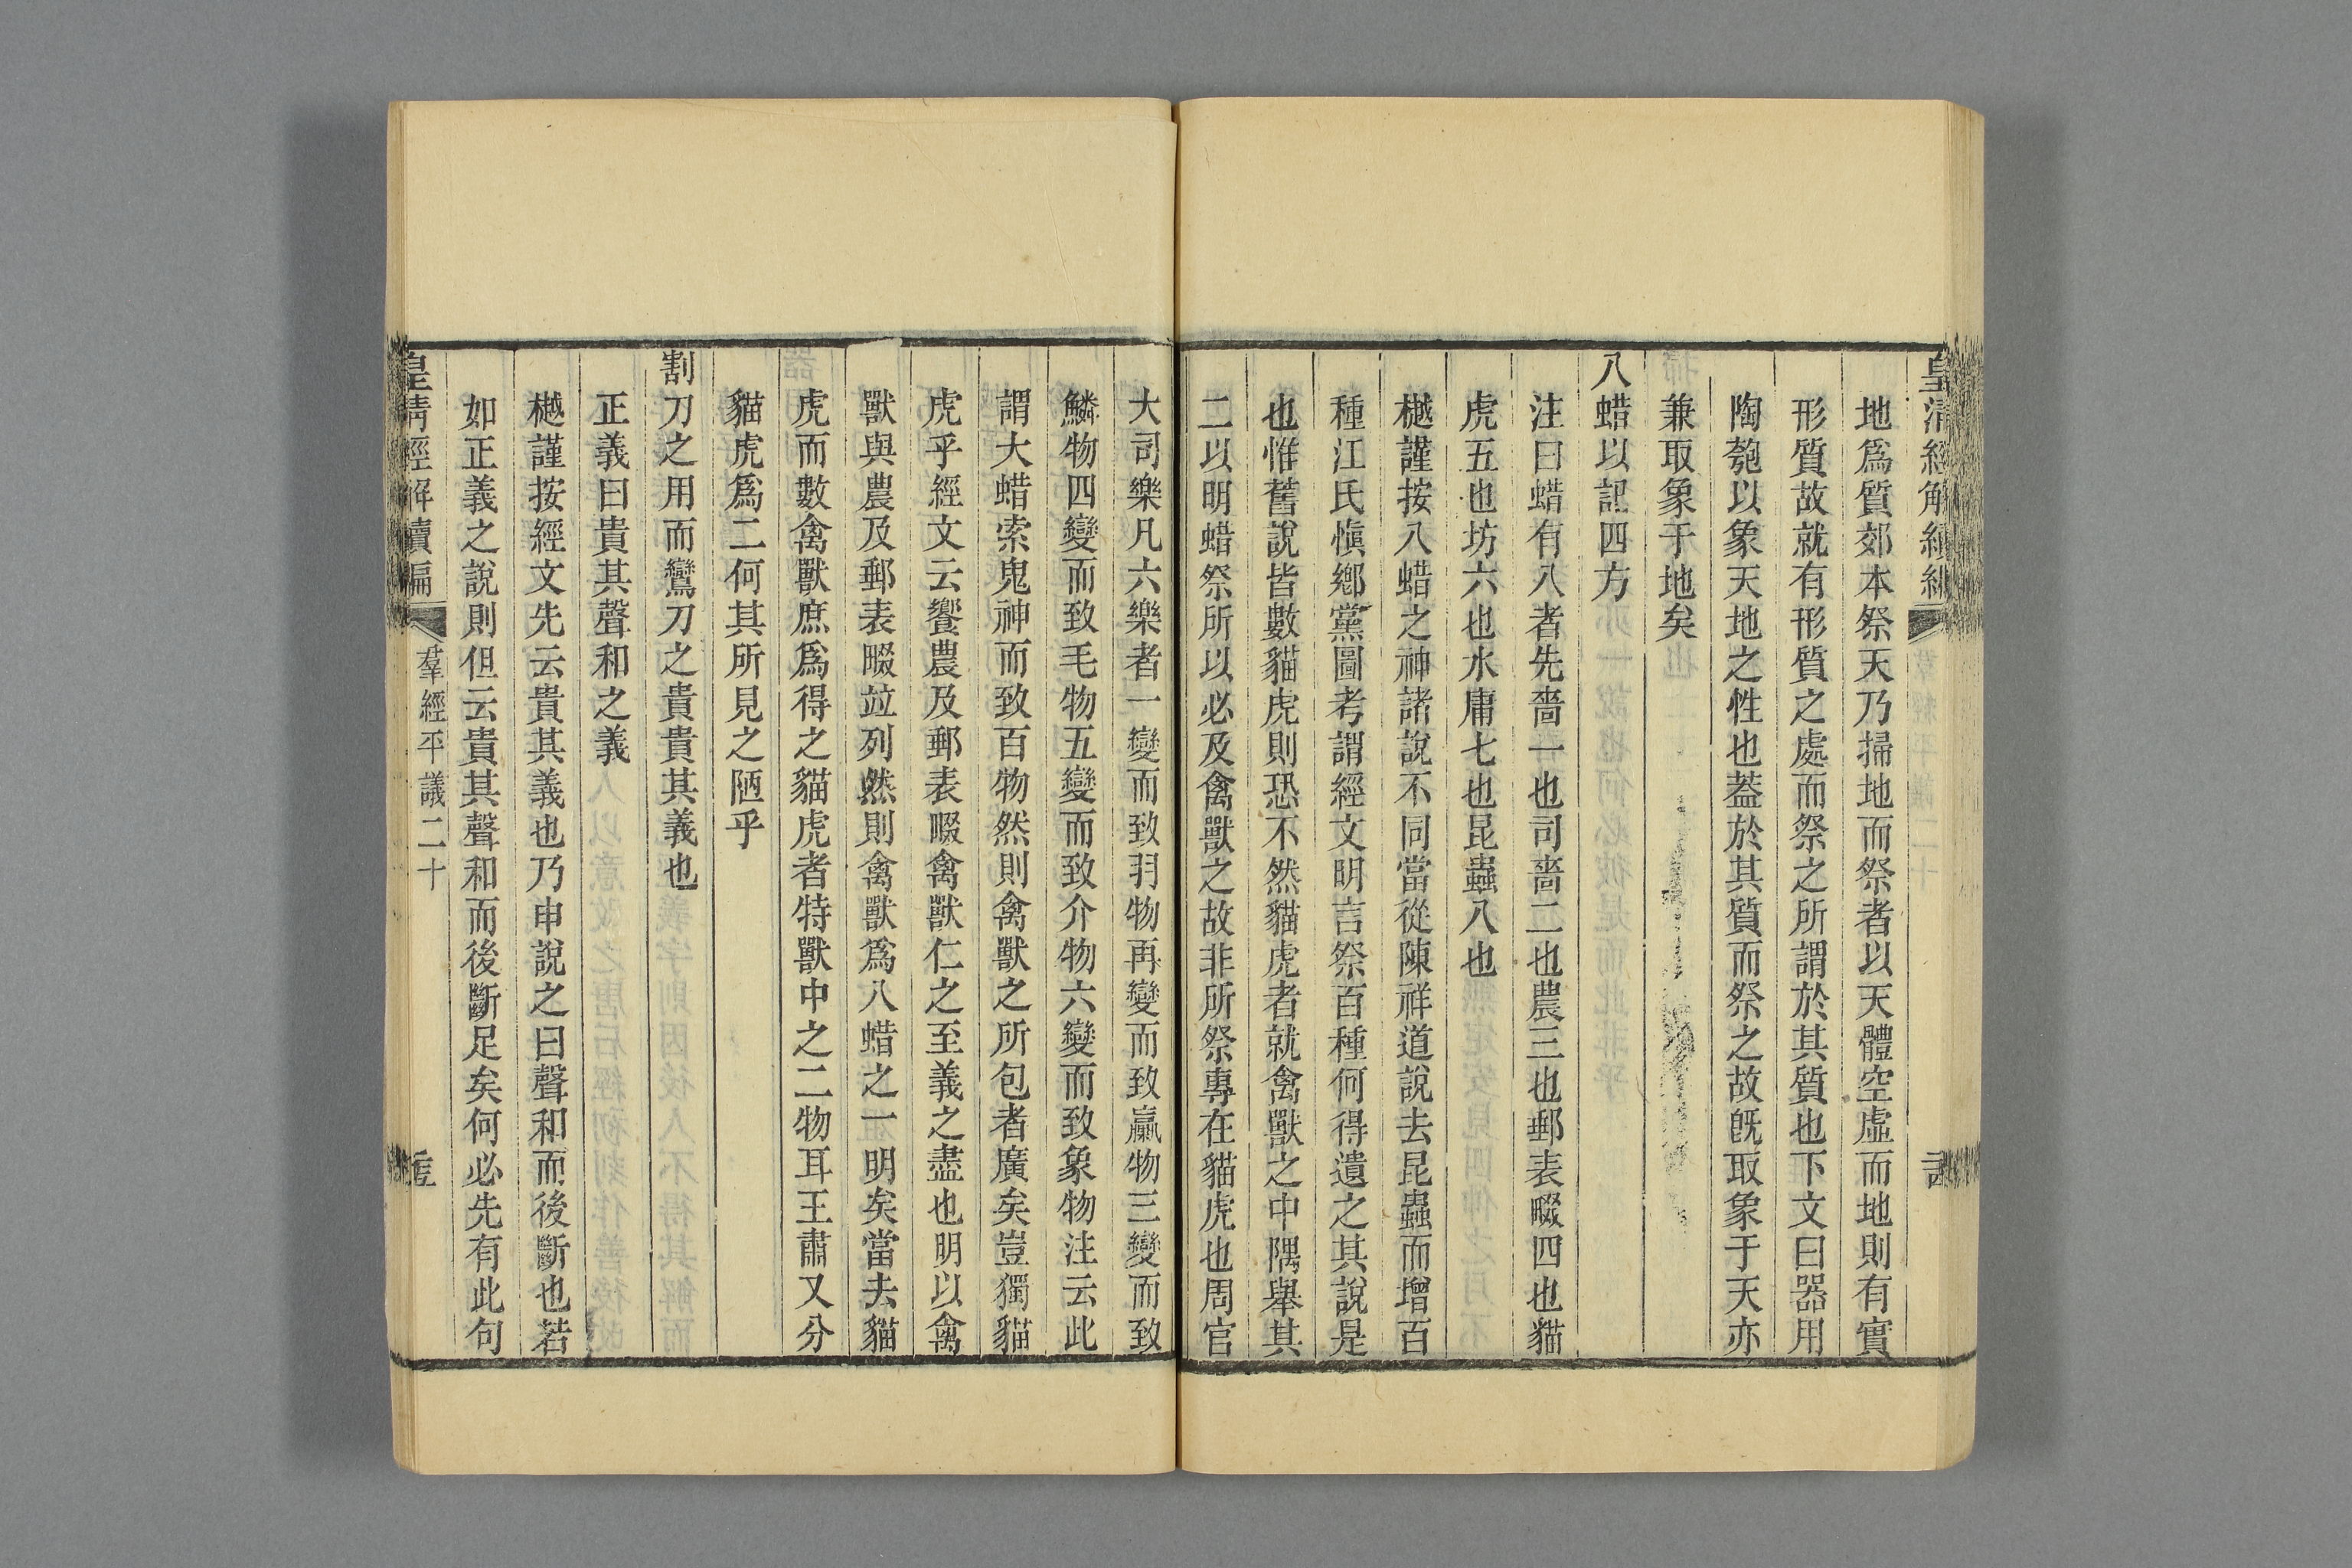 皇清經解續編
地爲質郊本祭天乃掃地而祭者以天體空虛而地則有實
形質故就有形質之處而祭之所謂於其質也下文曰器用
陶匏以象天地之性也蓋於其質而祭之故旣取象于天亦
兼取象于地矣
八蜡以記四方
注曰蜡有八者先嗇一也司嗇二也農三也郵表畷四也貓
虎五也坊六也水庸七也昆蟲八也
樾謹按八蜡之神諸說不同當從陳祥道說去昆蟲而增百
種江氏愼鄕黨圖考謂經文明言祭百種何得遺之其說是
也惟舊說皆數貓虎則恐不然貓虎者就禽獸之中隅舉其
二以明蜡祭所以必及禽獸之故非所祭專在貓虎也周官
大司樂凡六樂者一變而致羽物再變而致臝物三變而致
鱗物四變而致毛物五變而致介物六變而致象物注云此
謂大蜡索鬼神而致百物然則禽獸之所包者廣矣豈獨貓
虎乎經文云饗農及郵表畷禽獸仁之至義之盡也明以禽
獸與農及郵表畷竝列然則禽獸爲八蜡之一明矣當去貓
虎而數禽獸庶爲得之貓虎者特獸中之二物耳王肅又分
貓虎爲二何其所見之陋乎
割刀之用而鸞刀之貴貴其義也
正義曰貴其聲和之義
樾謹按經文先云貴其義也乃申說之曰聲和而後斷也若
如正義之說則但云貴其聲和而後斷足矣何必先有此句
皇清經解續編
羣經平議二十